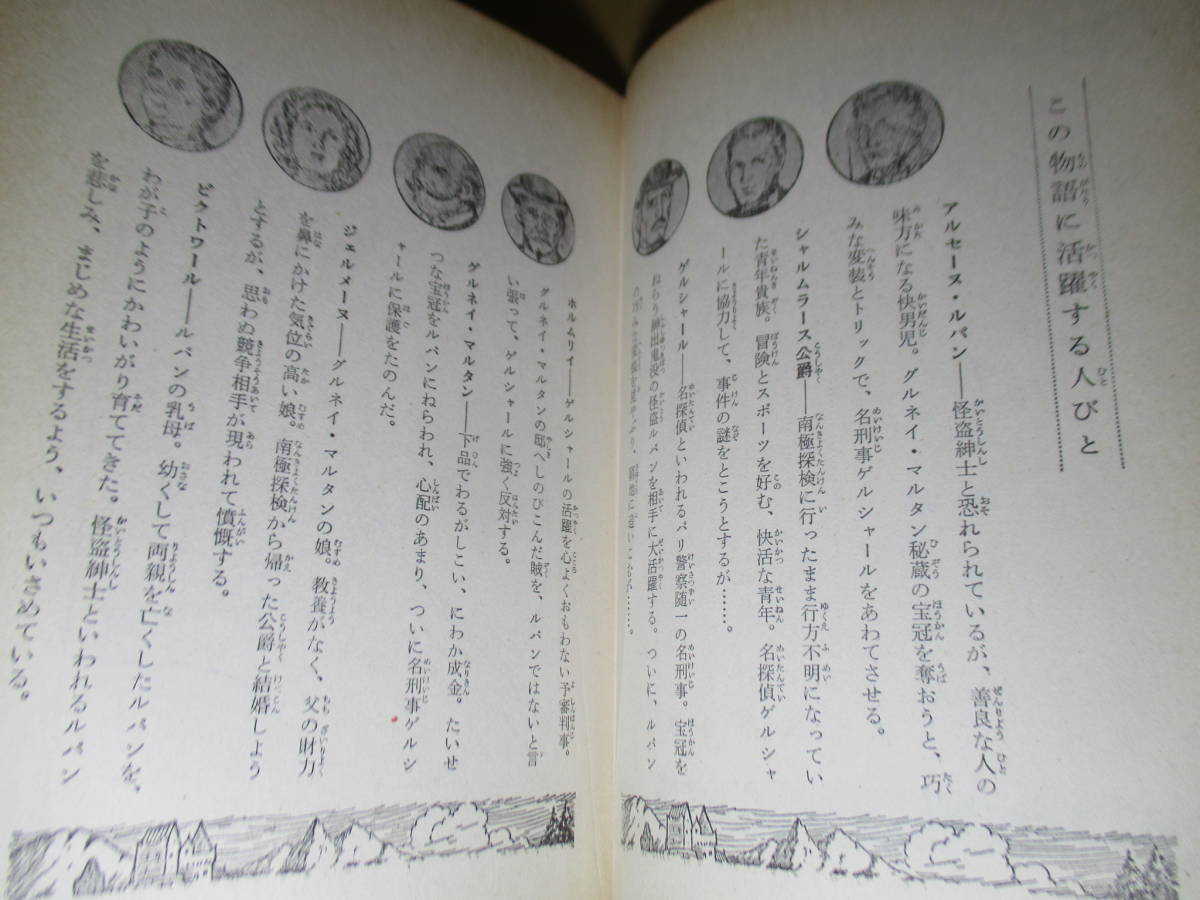 この物語に活躍する人びと
アルセーヌ・ルパン――怪盗紳士と恐れられているが、善良な人の
味方になる快男児。グルネイ・マルタン秘蔵の宝冠を奪おうと、巧
みな変装とトリックで、名刑事ゲルシャールをあわてさせる。
シャルムラース公爵――南極探検に行ったまま行方不明になってい
た青年貴族。冒険とスポーツを好む、快活な青年。名探偵ゲルシャ
ールに協力して、事件の謎をとこうとするが……。
ゲルシャール――名探偵といわれるパリ警察随一の名刑事。宝冠を
ねらう神出鬼没の怪盗ルパンを相手に大活躍する。ついに、ルパン
ホルムリイ――ゲルシャールの活躍を心よくおもわない予審判事。
グルネイ・マルタンの邸へしのびこんだ賊を、ルパンではないと言
い張って、ゲルシャールに強く反対する。
グルネイ・マルタン――下品でわるがしこい、にわか成金。たいせ
つな宝冠をルパンにねらわれ、心配のあまり、ついに名刑事ゲルシ
ャールに保護をたのんだ。
ジェルメーヌ――グルネイ・マルタンの娘。教養がなく、父の財力
を鼻にかけた気位の高い娘。南極探検から帰った公爵と結婚しよう
とするが、思わぬ競争相手が現われて憤慨する。
ビクトワール――ルパンの乳母。幼くして両親を亡くしたルパンを、
わが子のようにかわいがり育ててきた。怪盗紳士といわれるルパン
を悲しみ、まじめな生活をするよう、いつもいさめている。